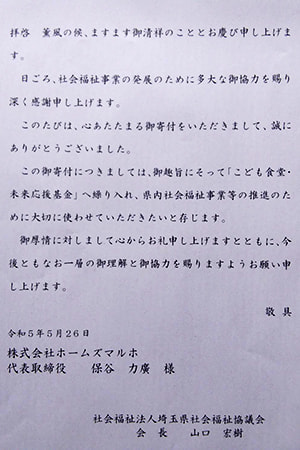 拝啓　薫風の候、ますます御清祥のこととお慶び申し上げま
す。
　日ごろ、社会福祉事業の発展のために多大な御協力を賜り
深く感謝申し上げます。
　このたびは、心あたたまる御寄付をいただきまして、誠に
ありがとうございました。
　この御寄付につきましては、御趣旨にそって「こども食堂・
未来応援基金」へ繰り入れ、県内社会福祉事業等の推進のた
めに大切に使わせていただきたいと存じます。
　御厚情に対しまして心からお礼申し上げますとともに、今
後ともなお一層の御理解と御協力を賜りますようお願い申
し上げます。
敬 具
令和５年５月２６日
株式会社ホームズマルホ
代表取締役　保谷　力廣　様
社会福祉法人埼玉県社会福祉協議会
会　長　　山口　宏樹